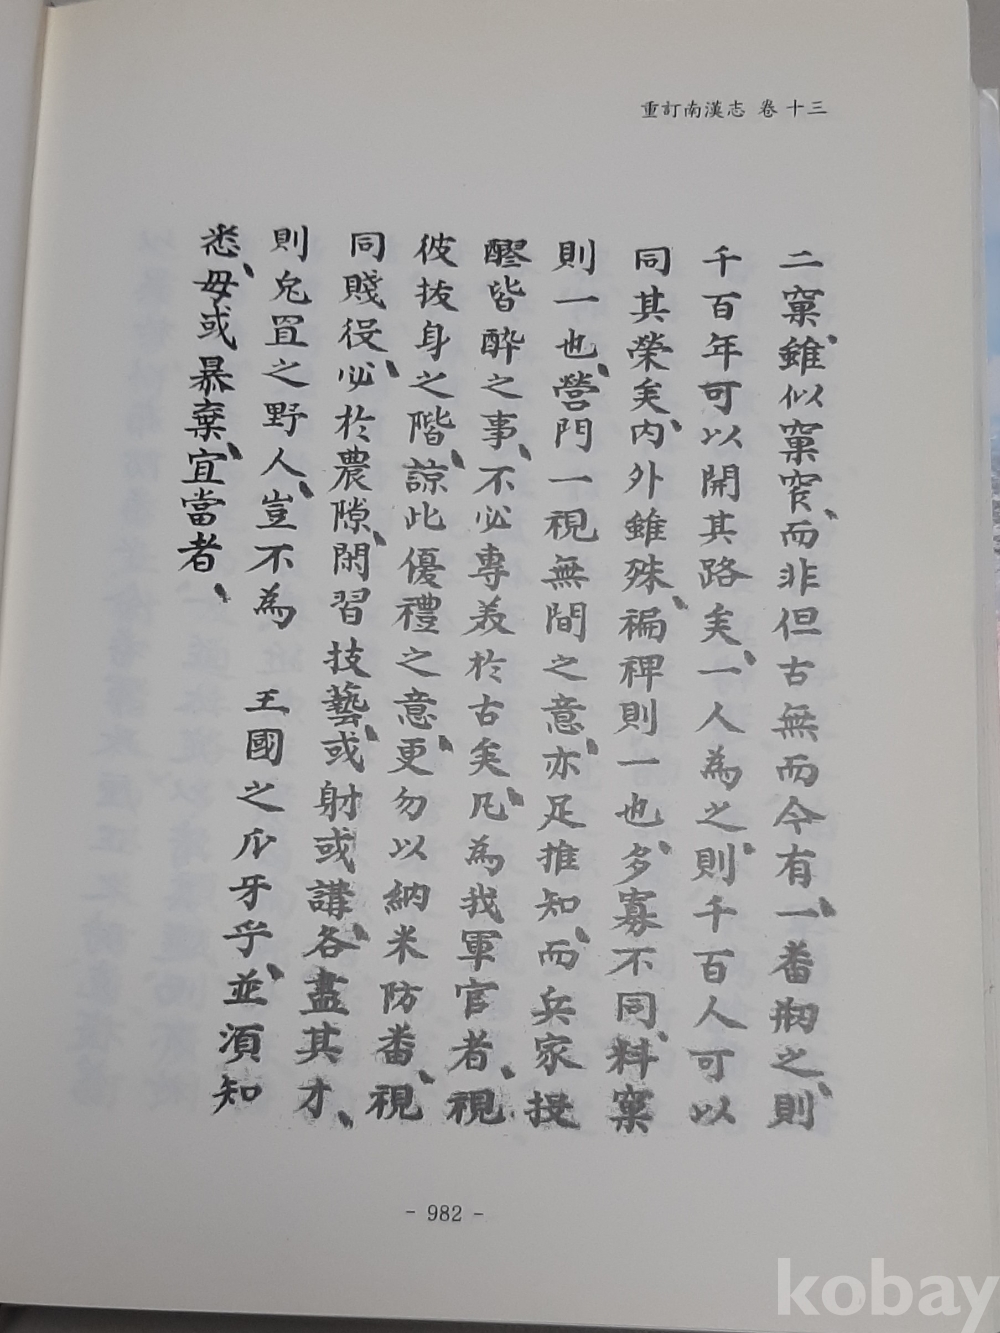 重訂南漢志 卷十三
二窠、雖似窠窄、而非但古無而今有、一番刱之、則
千百年可以開其路矣、一人為之、則千百人可以
同其榮矣、內外雖殊、褊稗則一也、多寡不同、料窠
則一也、營門一視無間之意、亦足推知、而兵家投
醪皆醉之事、不必專美於古矣、凡為我軍官者、視
彼拔身之階、諒此優禮之意、更勿以納米防番、視
同賤役、必於農隙、閑習技藝、或射或講、各盡其才、
則兔罝之野人、豈不為 王國之爪牙乎、並須知
悉、毋或暴棄、宜當者、
- 982 -
kobay